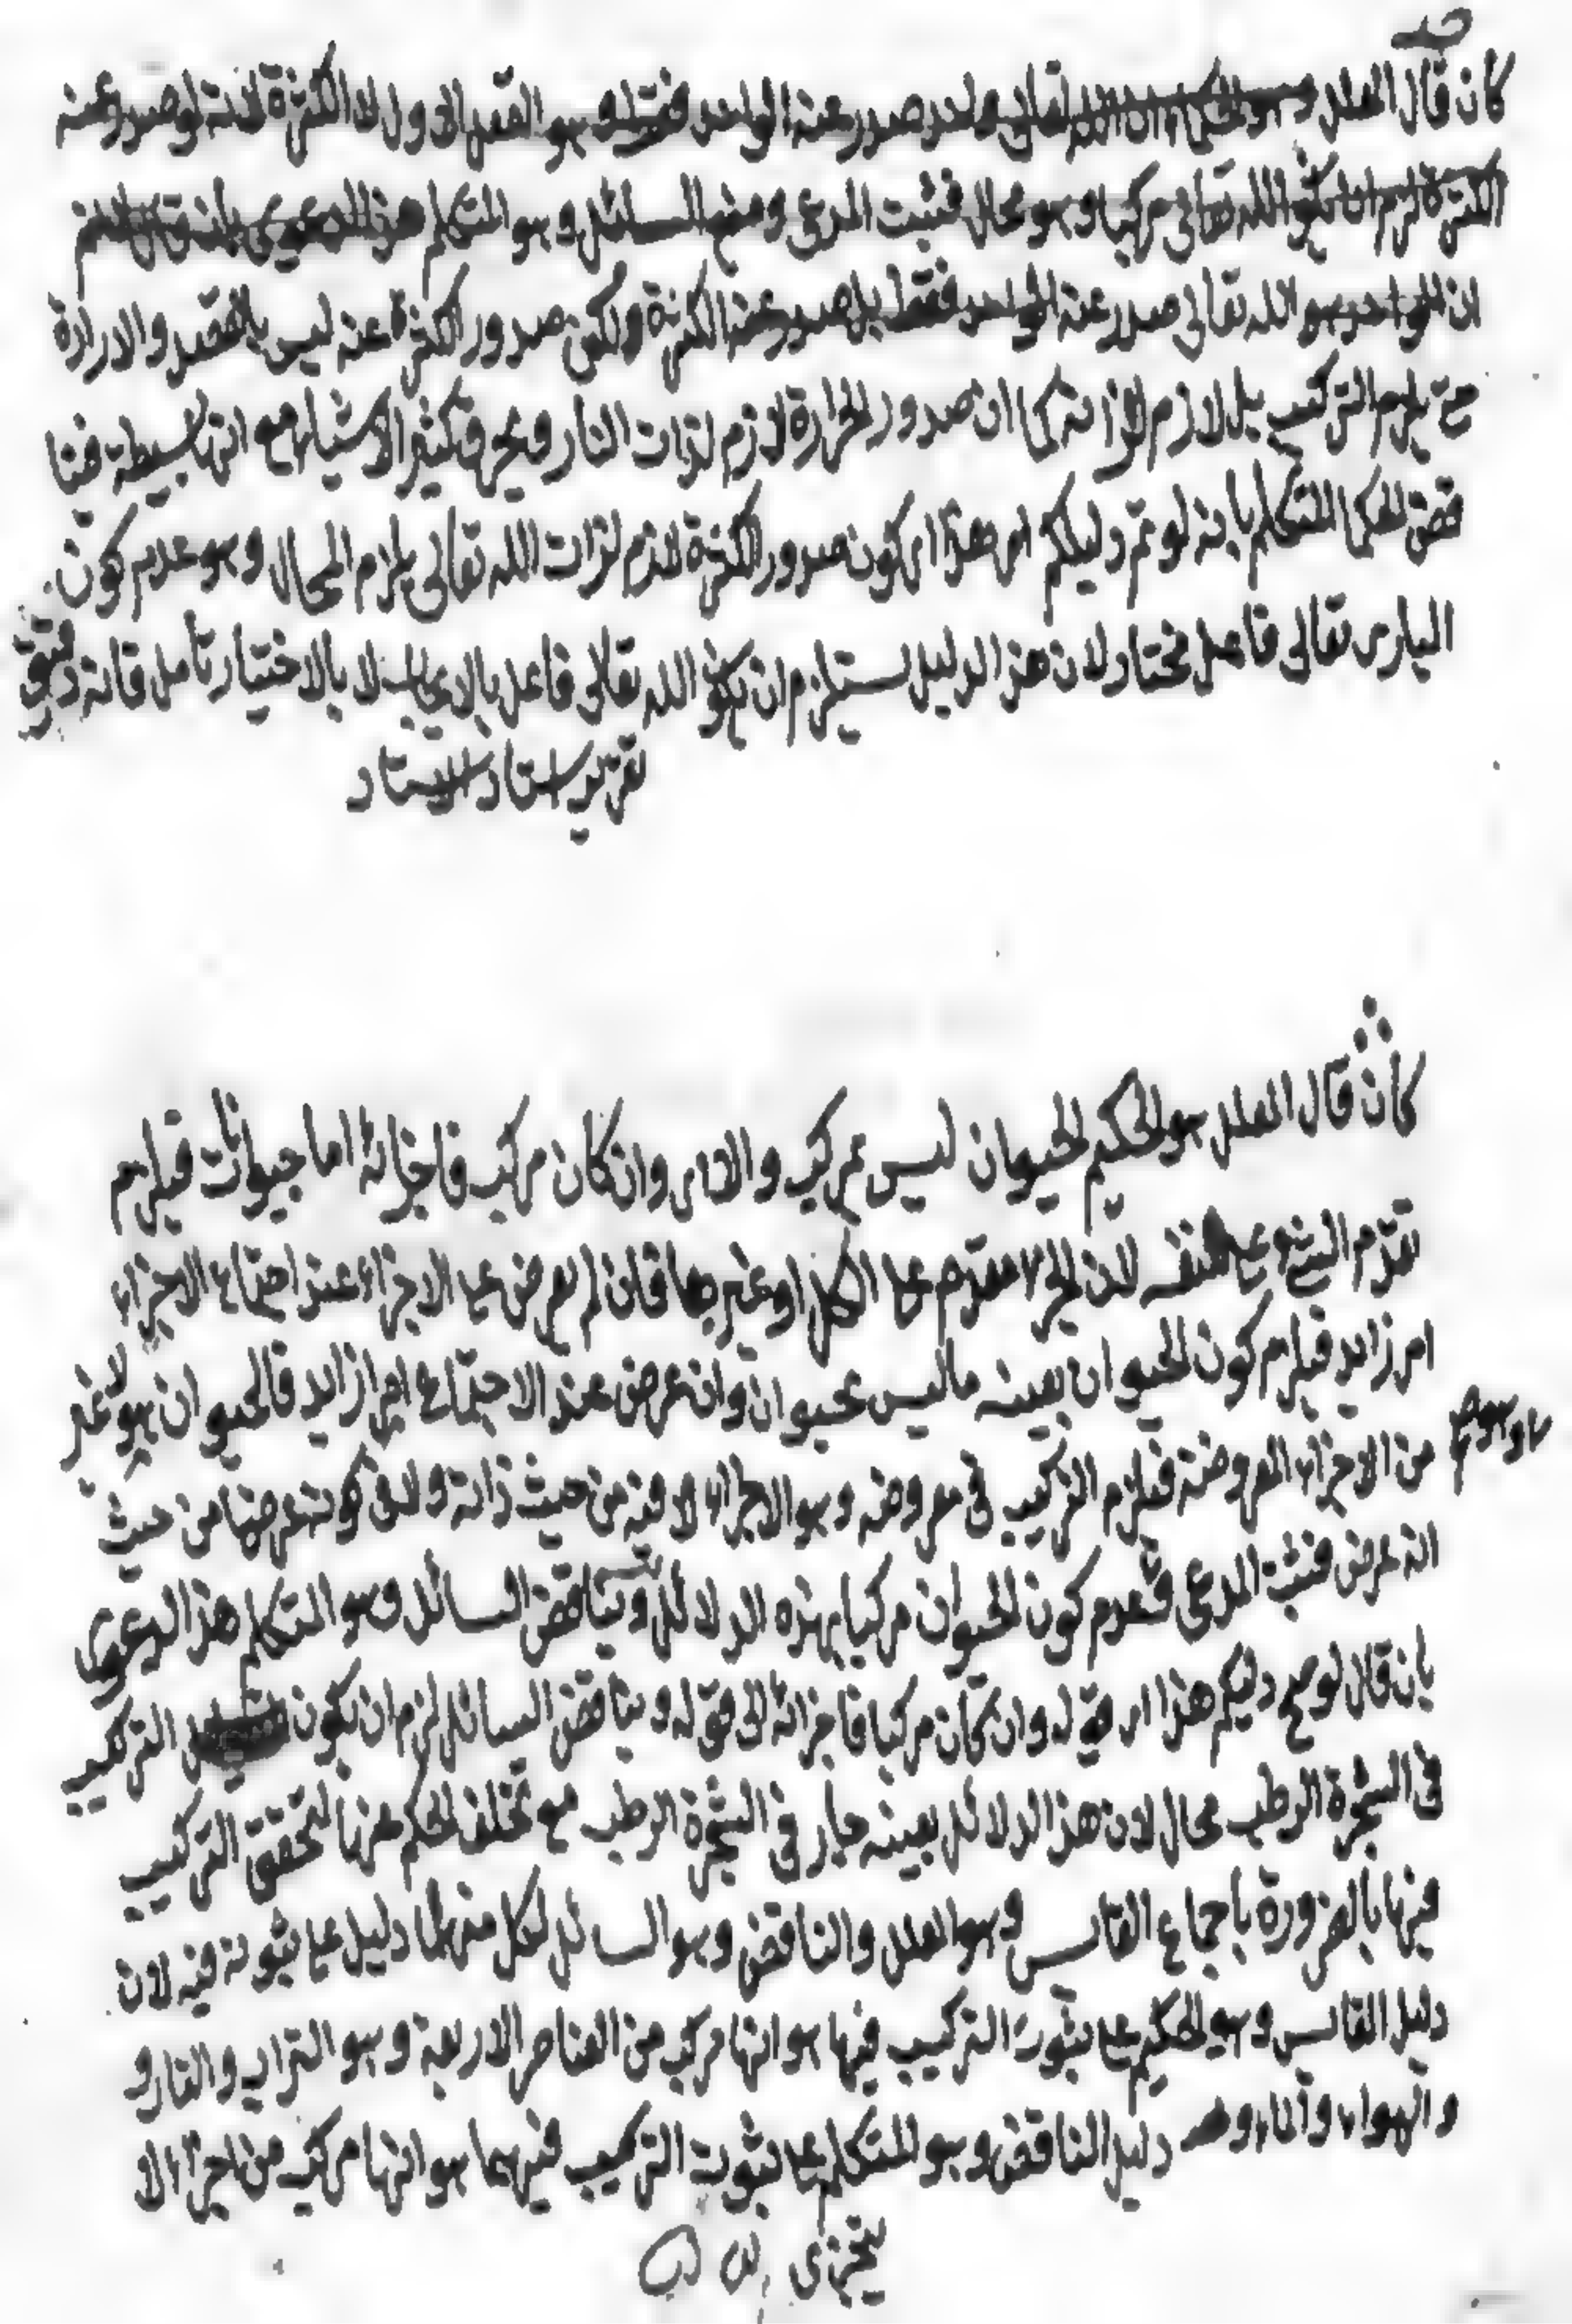 كان قال المعلل وهو الحكيم ان الله تعالى واحد صدر عنه الواحد فقط وهو العقل الاول لا الكثرة لانه لو صدر عنه
الكثرة لزم ان يكون الله تعالى مركبا وهو محال فثبت المدعى ومنع السائل وهو المتكلم هذا الدعوى بان قال لانم
ان الواحد هو الله تعالى صدر عنه الواحد فقط بل صدر عنه الكثرة ولكن صدور الكثرة عنه ليس بالقصد والارادة
حتى يلزم التركيب بل لازم لذاته كما ان صدور الحرارة لازم لذات النار ويحرق كثير الاشياء مع انها بسيطة فنا
قض الحكيم المتكلم بانه لو تم دليلكم اى هذا اى كون صدور الكثرة لازم لذات الله تعالى يلزم المحال وهو عدم كون
البارى تعالى فاعل مختار لان هذا الدليل يستلزم ان يكون الله تعالى فاعل بالايجاب لا بالاختيار تأمل فانه دقيق
تقرير استاد الاستاد
كان قال المعلل هو الحكيم الحيوان ليس بمركب والا اى وان كان مركب فاجزائه اما حيوانات فيلزم
تقدم الشئ على نفسه لان الجزء مقدم على الكل او غيرها فان لم يعرض على الاجزاء عند اجتماع الاجزاء
امر زايد فيلزم كون الحيوان بعينه ما ليس بحيوان وان عرض عند الاجتماع امر زايد فالحيوان هو لا غير
من الاجزاء المعروضة فيلزم التركيب فى معروضه وهو الاجزاء لا فيه من حيث ذاته ولا فى من حيث
انه عرض فثبت المدعى فعدم كون الحيوان مركبا بهذه الدلائل ويناقض السائل وهو المتكلم هذا الدعوى
بان قال لو صح دليلكم هذا اى قوله وان كان مركبا فاجزائه الى قوله ويناقض السائل لزم ان يكون التركيب
فى الشجرة الرطب محال لان هذا الدلائل بعينه جار فى الشجرة الرطب مع تخلف الحكم عنها لتحقق التركيب
فيها بالضرورة باجماع القايس وهو المعلل والناقض وهو السائل لكل منهما دليل على ثبوته فيه لان
دليل القايس وهو الحكيم على ثبوت التركيب فيها هو انها مركب من العناصر الاربعة وهو التراب والنار و
والهواء والماء و دليل الناقض وهو المتكلم على ثبوت التركيب فيهما هو انها مركب من اجزاء لا
يتجزى